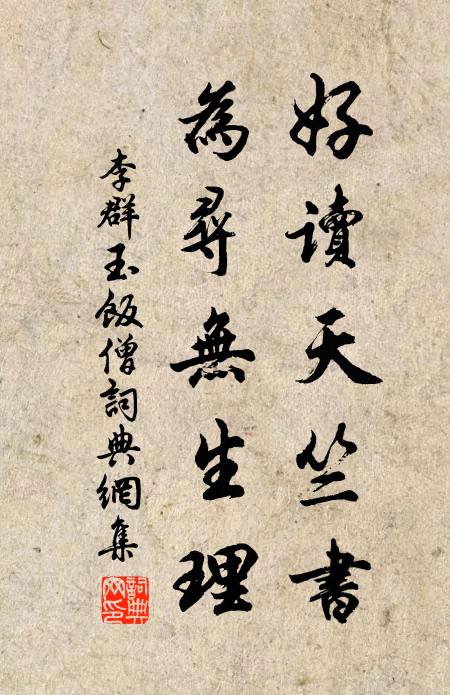 好讀天竺書
為尋無生理
李群玉飯僧詞典網集
詞典
网印